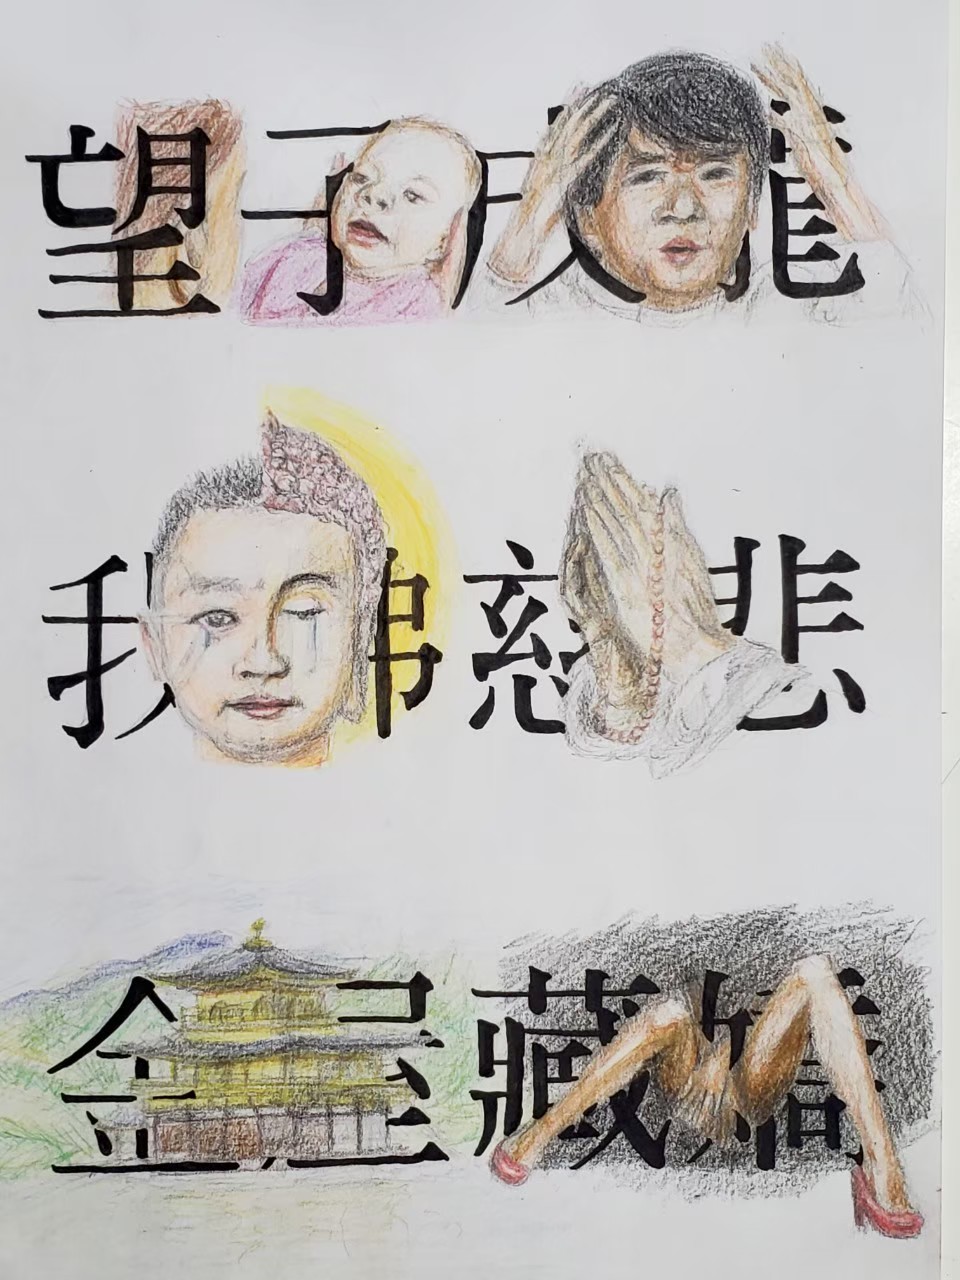 望子成龍
我佛慈悲
金屋藏嬌